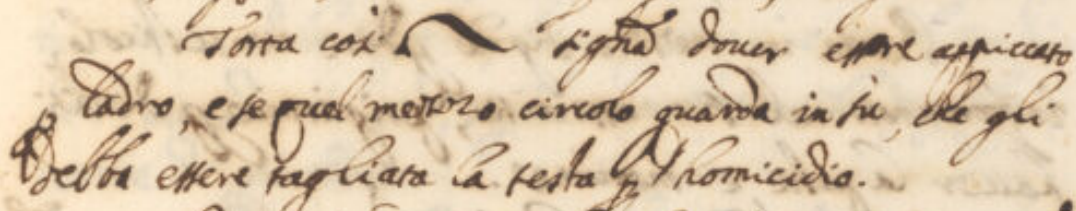 Torta così signã dover essre appiccato
p ladro, e se quel mezzo circolo guarda in sù, che gli
debba essere tagliata la testa p l'homicidio.